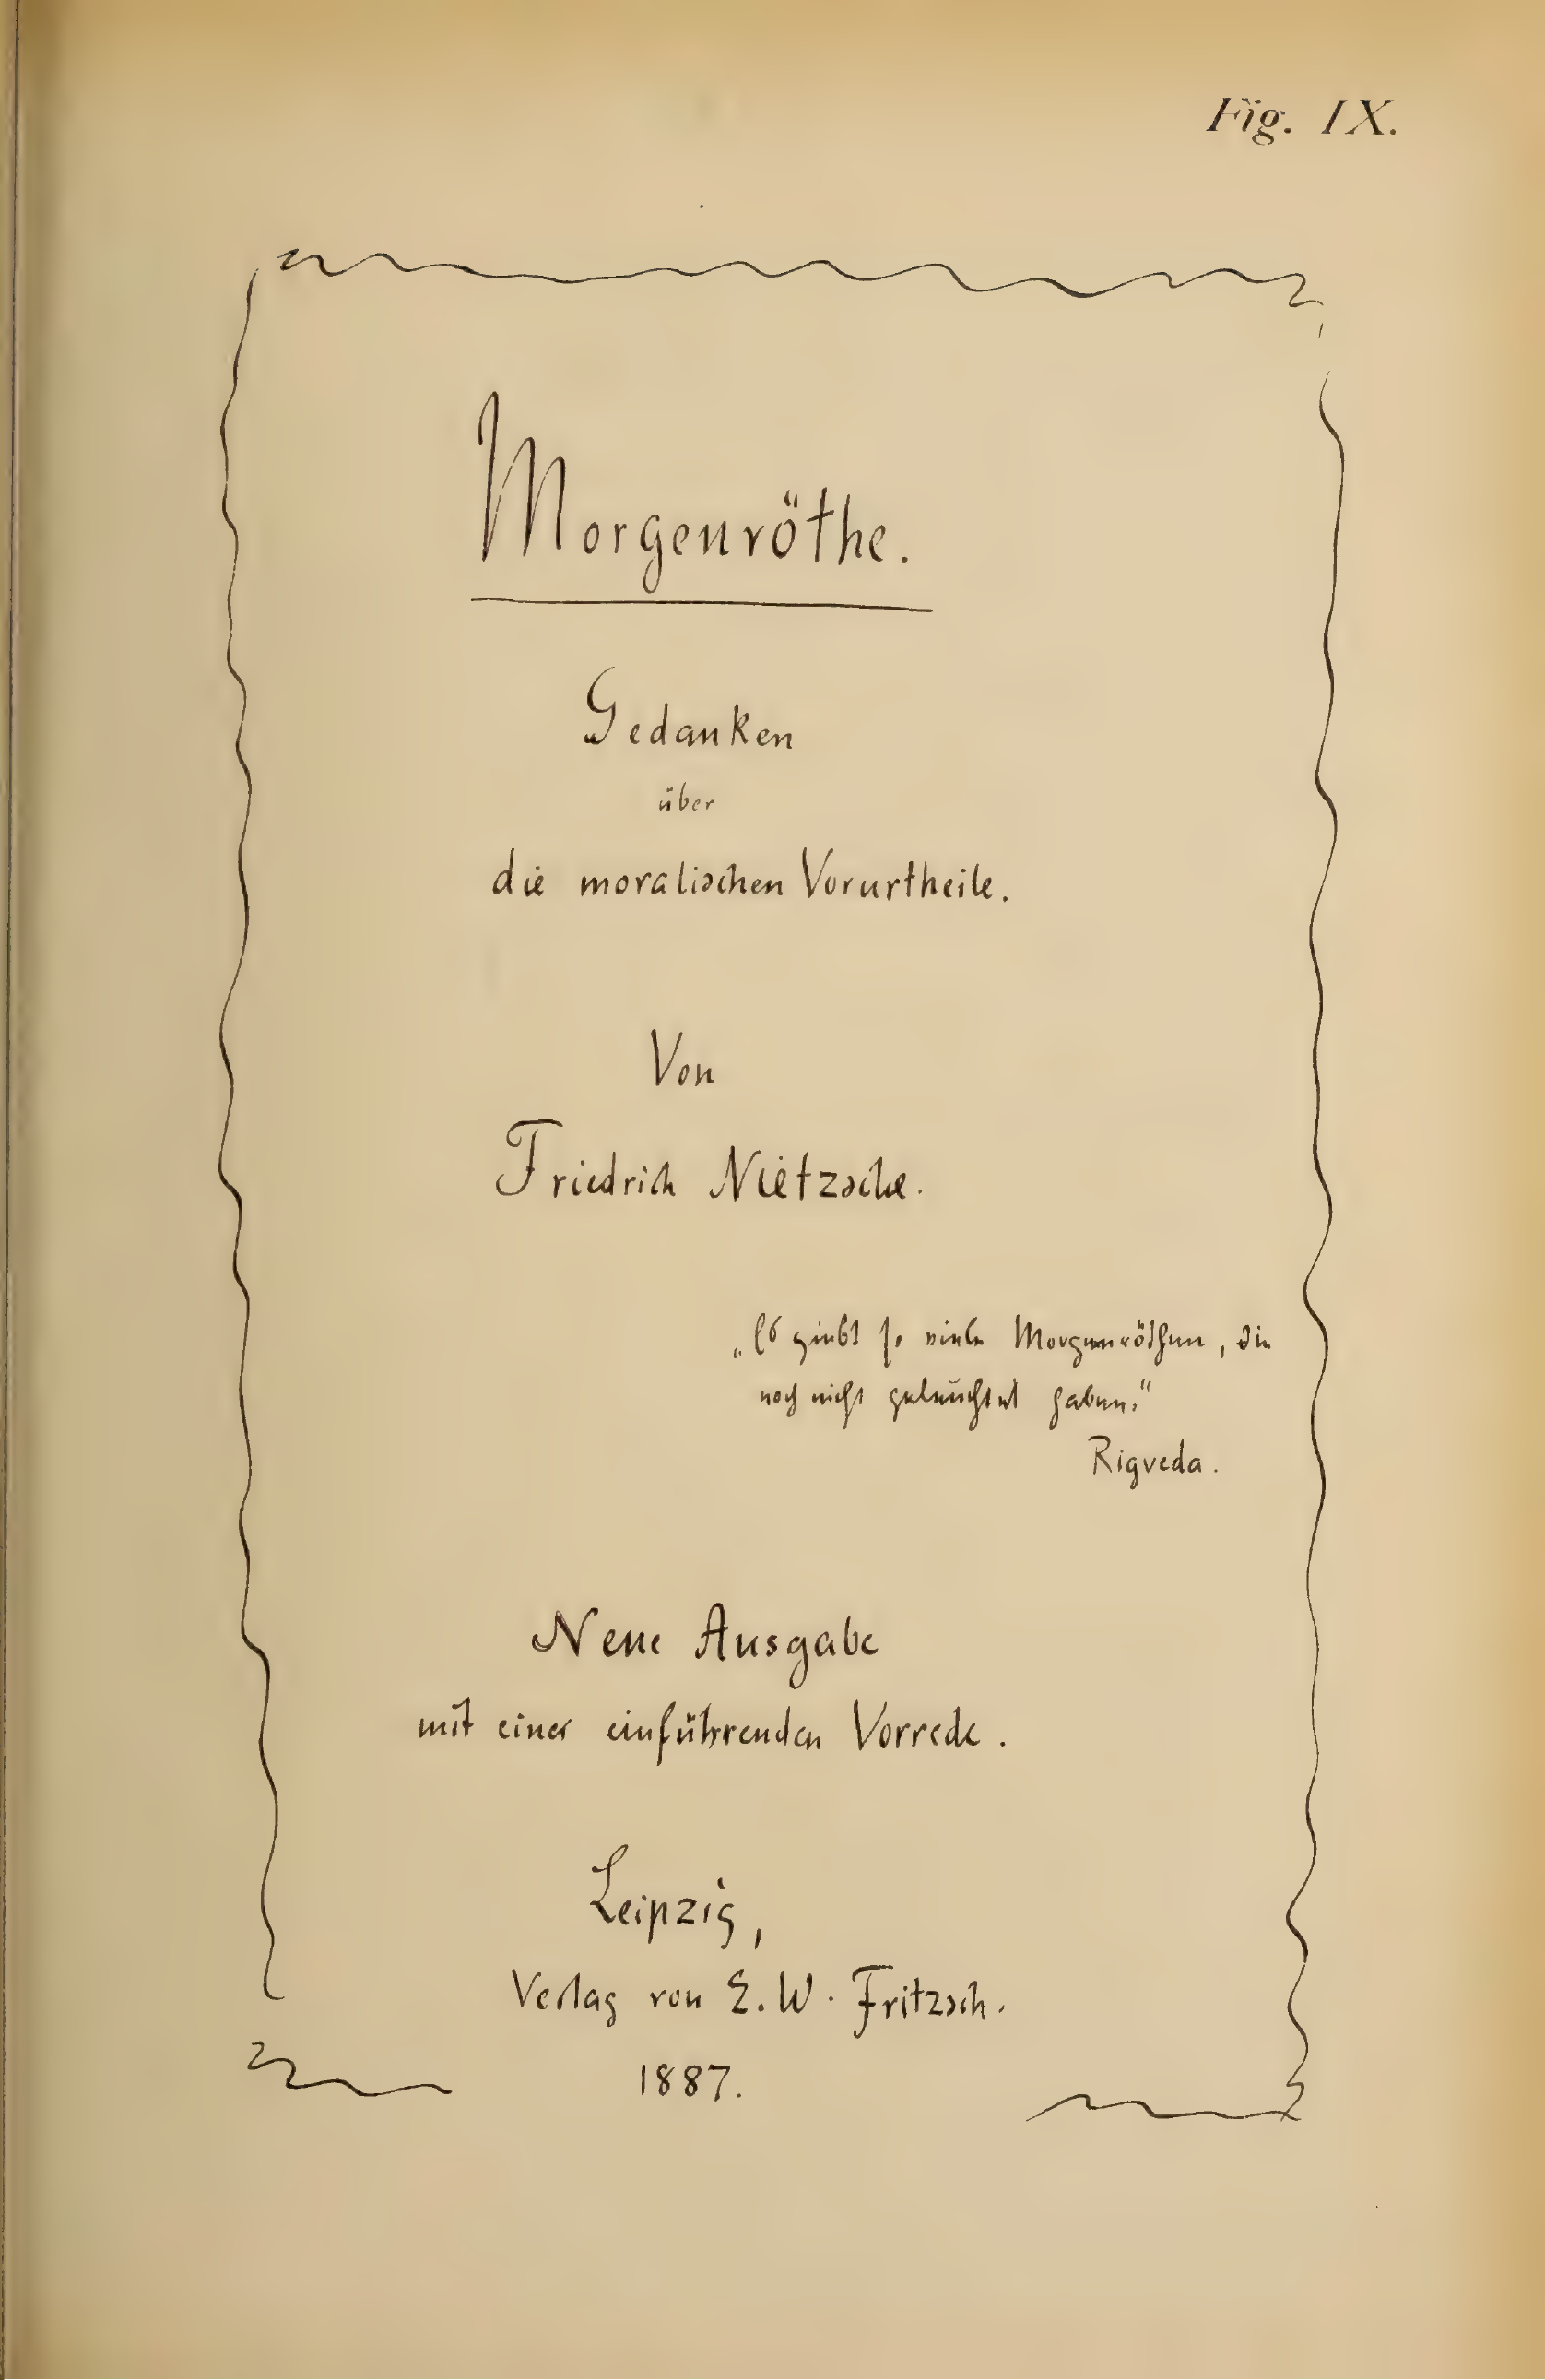 Fig. IX.
Morgenröthe.
Gedanken
über
die moralischen Vorurtheile.
Von
Friedrich Nietzsche.
„Es giebt so viele Morgenröthen, die
noch nicht geleuchtet haben."
Rigveda.
Neue Ausgabe
mit einer einführenden Vorrede.
Leipzig,
Verlag von E. W. Fritzsch.
1887.